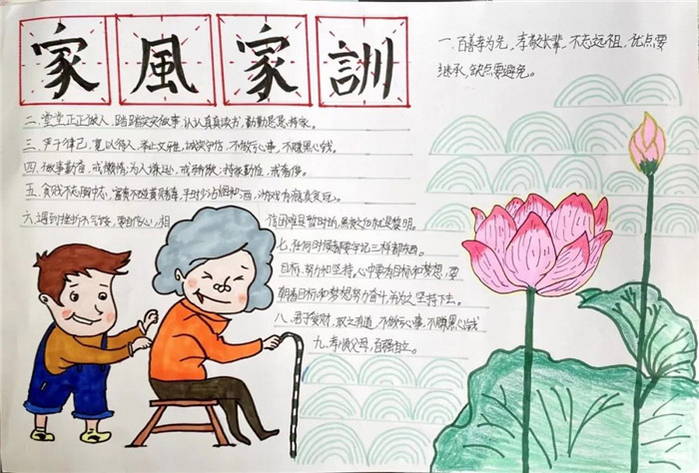 家風家訓
一、百善孝为先，孝敬长辈，不忘远祖，优点要
继承，缺点要避免。
二、堂堂正正做人，踏踏实实做事，认认真真读书，勤勤恳恳持家。
三、严于律己，宽以待人，举止文雅，诚实守信，不做亏心事，不赚黑心钱。
四、做事勤奋，戒懒惰；为人谦逊，戒骄傲；持家勤俭，戒奢侈。
五、贫贱不
六、遇到挫折不气馁，要自信心，相
信困难是暂时的，黑夜之后就是黎明。
七、任何时候都要牢记三样东西。
目标、努力和坚持。心中要有目标和梦想，要
朝着目标和梦想努力奋斗，并为之坚持下去。
八、君子爱财，取之有道，不做亏心事，不赚黑心钱
九、孝顺父母，自强自立。